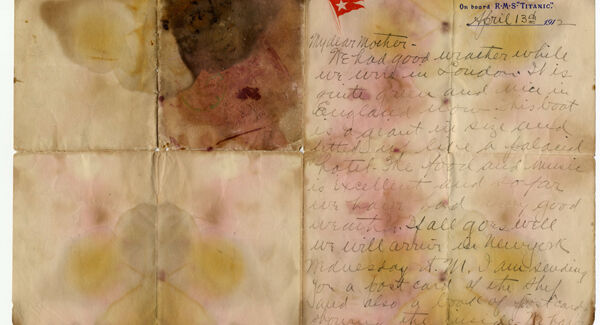 On board R·M·S "TITANIC".
April 13th 1912
My dear Mother -
We had good weather while
we were in London. It is
quite green and nice in
England now. This boat
is a giant in size and
fitted up like a palacial
hotel. The food and music
is excellent and so far
we have had very good
weather. If all goes well
we will arrive in New york
Wednesday A.M. I am sending
you a post card of the ship
and also a book of post cards
showing the inside